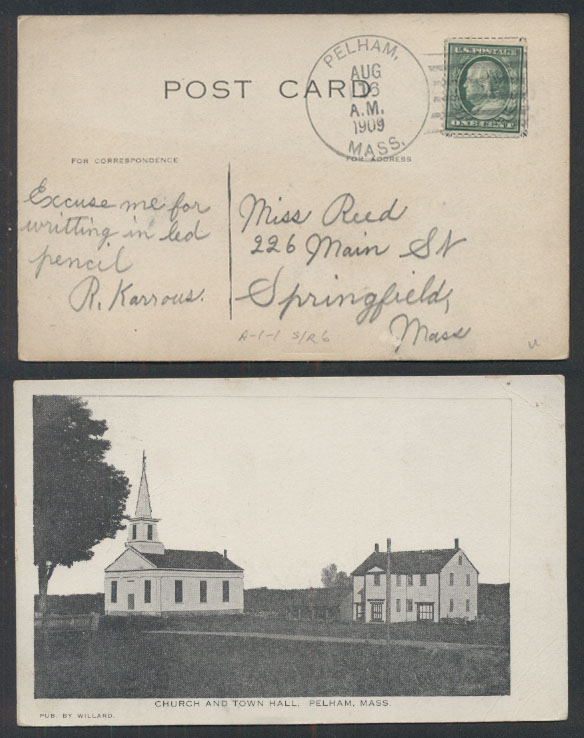 POST CARD
PELHAM,
AUG
16
A.M.
1909
MASS.
U.S. POSTAGE
ONE CENT
FOR CORRESPONDENCE
FOR ADDRESS
Excuse me for
writting in led
pencil
R. Karrous.
Miss Reed
226 Main St
Springfield,
Mass
A-1-1 S/R 6
CHURCH AND TOWN HALL. PELHAM, MASS.
PUB. BY WILLARD.